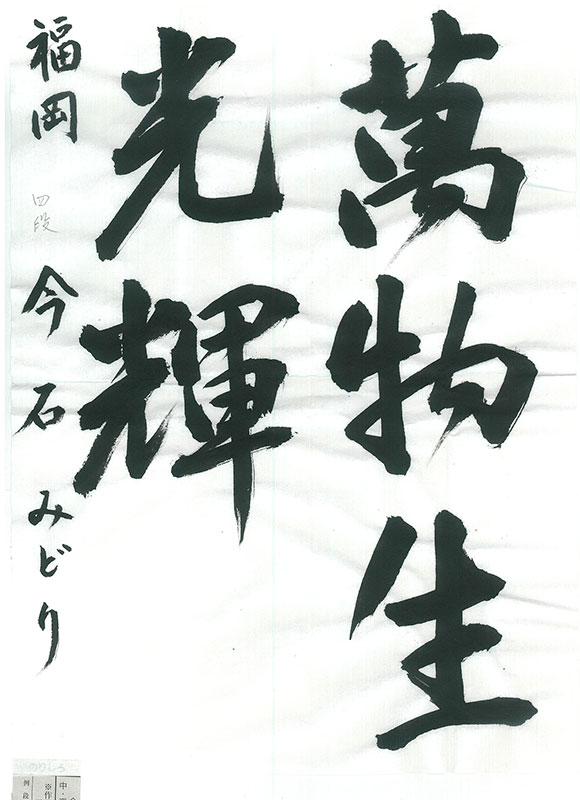 萬物生
光輝
福岡 四段 今石みどり
のりしろ